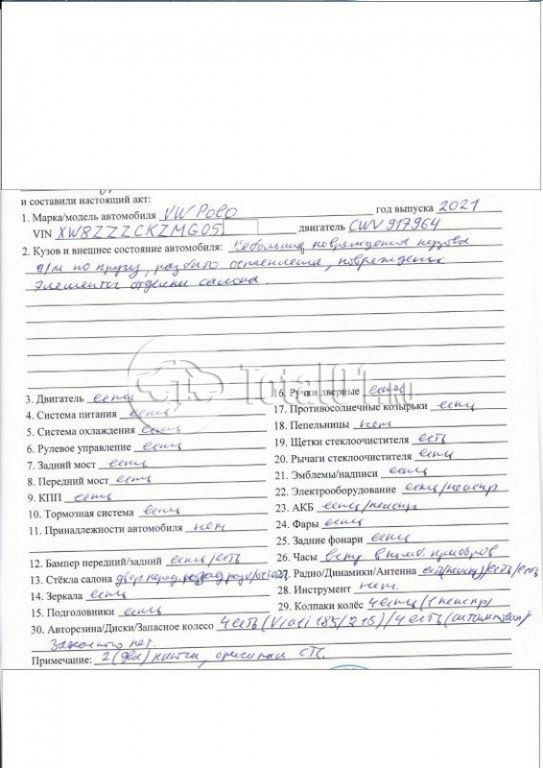 и составили настоящий акт:
1. Марка/модель автомобиля VW Polo год выпуска 2021
VIN XW8ZZZCKZMG05 двигатель CWV 917964
2. Кузов и внешнее состояние автомобиля: Небольшие повреждения кузова
а/м по кругу, разбито остекление, повреждены
элементы отделки салона.
Total01.ru
3. Двигатель есть
16. Ручки дверные есть
4. Система питания есть
17. Противосолнечные козырьки есть
5. Система охлаждения есть
18. Пепельницы нет
6. Рулевое управление есть
19. Щетки стеклоочистителя есть
7. Задний мост есть
20. Рычаги стеклоочистителя есть
8. Передний мост есть
21. Эмблемы/надписи есть
9. КПП есть
22. Электрооборудование есть/неиспр
10. Тормозная система есть
23. АКБ есть/неиспр
11. Принадлежности автомобиля нет
24. Фары есть
25. Задние фонари есть
12. Бампер передний/задний есть/есть
26. Часы есть в щитк. приборов
13. Стёкла салона
27. Радио/Динамики/Антенна есть(неиспр)/есть/есть
14. Зеркала есть
28. Инструмент нет.
15. Подголовники есть
29. Колпаки колёс 4 есть (1 неиспр)
30. Авторезина/Диски/Запасное колесо 4 есть (Viatti 185/215)/4 есть (штамповка)/
Запасного нет.
Примечание: 2 (два) ключа, оригинал СТС.